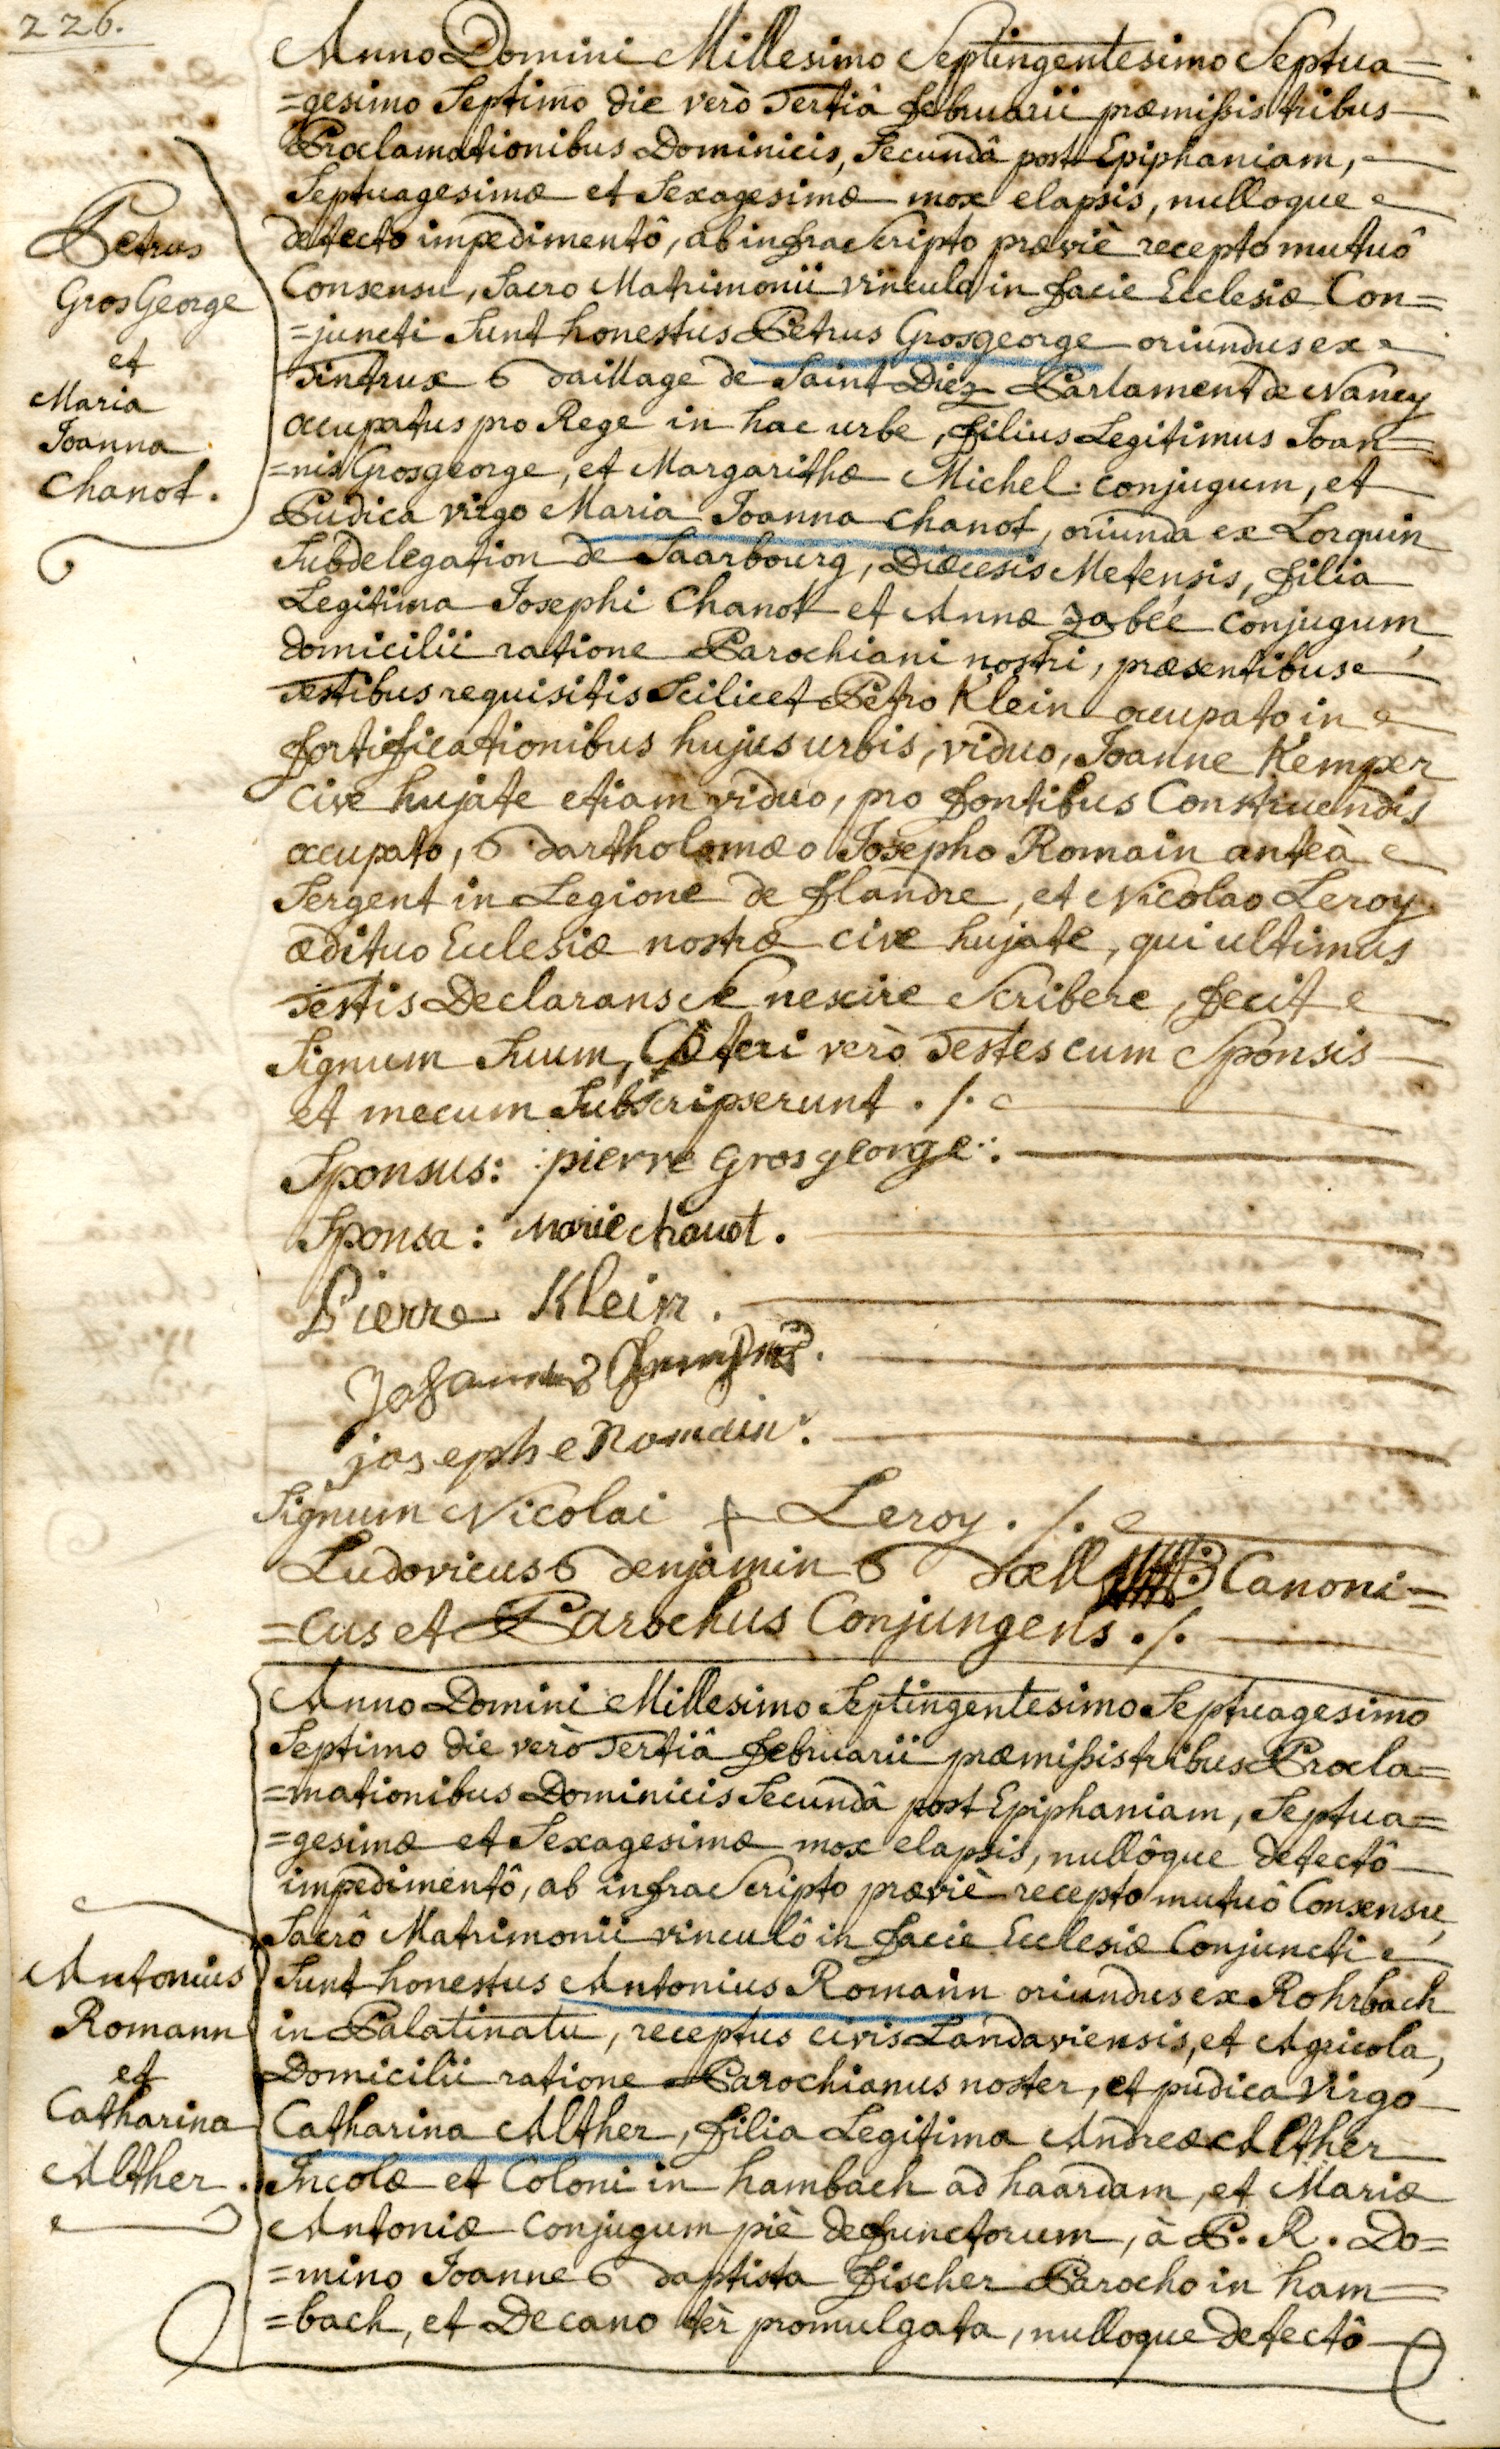 226.
Anno Domini Millesimo Septingentesimo Septua=
=gesimo Septimo die verò Tertiâ Februarii præmissis tribus
Proclamationibus Dominicis, Secundâ post Epiphaniam,
Septuagesimæ et Sexagesimæ mox elapsis, nulloque
detecto impedimentô, ab infra Scripto præviè recepto mutuô
Consensu, Sacro Matrimonii vinculo in facie Ecclesiæ Con=
=juncti Sunt honestus Petrus Grosgeorge oriundus ex
Tintrux Baillage de Saint Diez Parlament de Nancy
occupatus pro Rege in hac urbe, filius Legitimus Joan=
=nis Grosgeorge, et Margarithæ Michel conjugum, et
Pudica virgo Maria Joanna Chanot, oriunda ex Lorquin
Subdelegation de Saarbourg, Diœcesis Metensis, filia
Legitima Josephi Chanot et Annæ Zabée Conjugum,
domicilii ratione Parochiani nostri, præsentibus
Testibus requisitis Scilicet Petro Klein occupato in
fortificationibus hujus urbis, viduo, Joanne Kemper
Cive hujate etiam viduo, pro fontibus Construendis
occupato, Bartholomæo Josepho Romain anteà
Sergent in Legione de Flandre, et Nicolao Leroy
ædituo Ecclesiæ nostræ cive hujate, qui ultimus
Testis Declarans Se nescire Scribere, fecit
Signum Suum, Cæteri verò Testes cum Sponsis
et mecum Subscripserunt ./.
Petrus
Gros George
et
Maria
Joanna
Chanot.
Sponsus: pierre grosgeorge:
Sponsa: Marie chanot.
Pierre Klein.
Johannes
josephe Romain:
Signum Nicolai + Leroy ./.
Ludovicus Benjamin Bæll Canoni=
=cus et Parochus Conjungens ./.
Anno Domini Millesimo Septingentesimo Septuagesimo
Septimo die verò Tertiâ Februarii præmissis tribus Procla=
=mationibus Dominicis Secundâ post Epiphaniam, Septua=
=gesimæ et Sexagesimæ mox elapsis, nullôque detectô
impedimentô, ab infra Scripto præviè recepto mutuô Consensu,
Sacrô Matrimonii vinculô in facie Ecclesiæ Conjuncti
Sunt honestus Antonius Romann oriundus ex Rohrbach
in Palatinatu, receptus civis Landaviensis, et Agricola,
Domicilii ratione Parochianus noster, et pudica virgo
Catharina Alther, filia Legitima Andreæ Alther
Incolæ et Coloni in hambach ad haardam, et Mariæ
Antoniæ Conjugum piè defunctorum, à P. R. Do=
=mino Joanne Baptista Fischer Parocho in ham=
=bach, et Decano tèr promulgata, nulloque detectô
Antonius
Romann
et
Catharina
Alther.